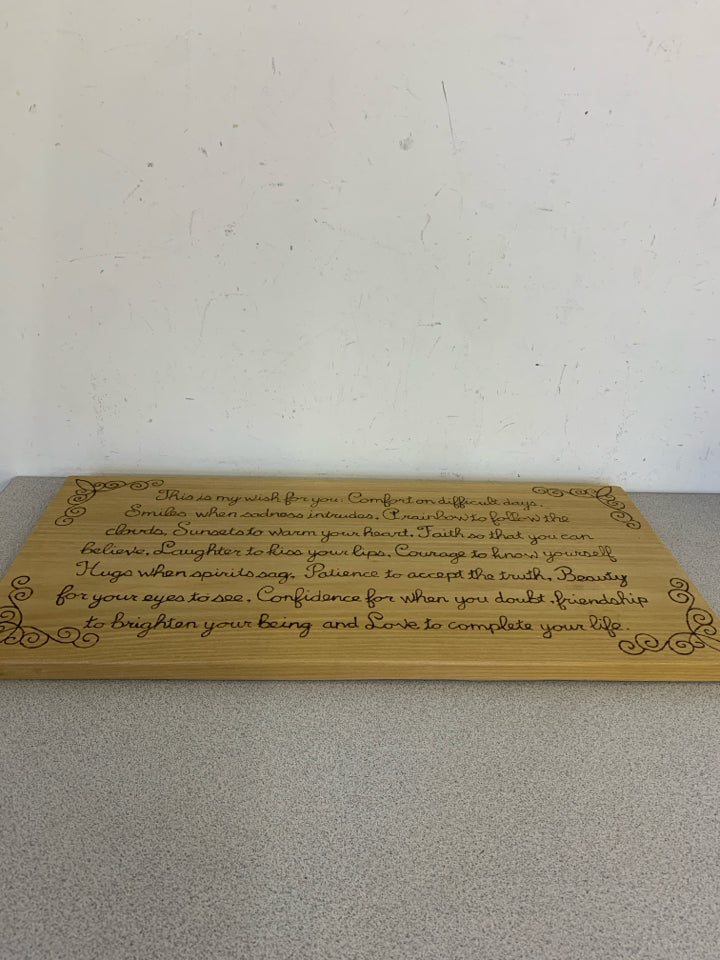 This is my wish for you. Comfort on difficult days.
Smiles when sadness intrudes. A rainbow to follow the
clouds, Sunsets to warm your heart. Faith so that you can
believe. Laughter to kiss your lips. Courage to know yourself
Hugs when spirits sag. Patience to accept the truth. Beauty
for your eyes to see. Confidence for when you doubt. friendship
to brighten your being and Love to complete your life.